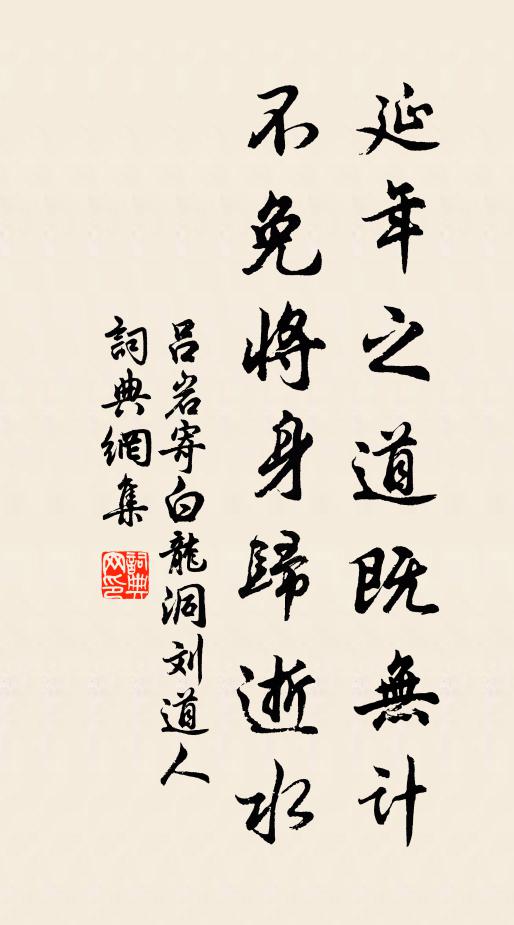 延年之道既無計
不免將身歸逝水
吕岩寄白龍洞刘道人
詞典網集
詞典
网印